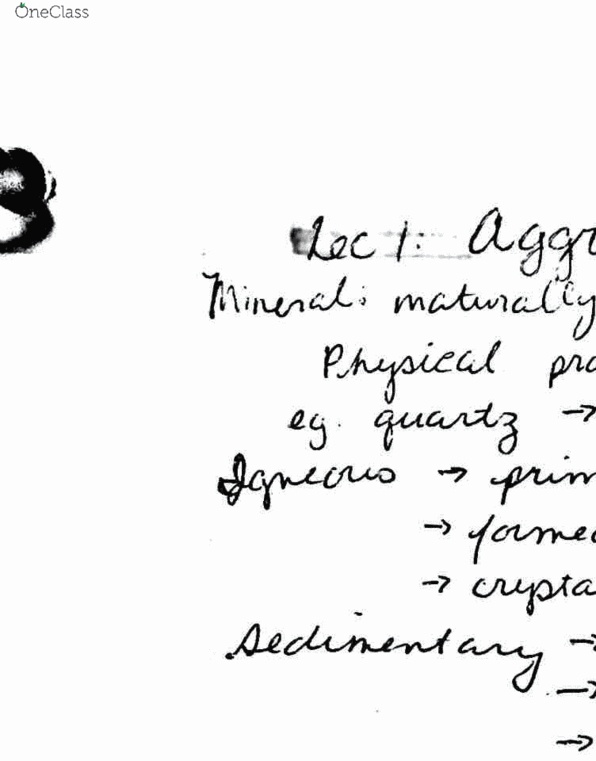 OneClass
Lec 1: Aggr
Mineral: naturally
Physical pro
eg. quartz →
Igneous → prim
→ formed
→ crysta
Sedimentary →
→
→